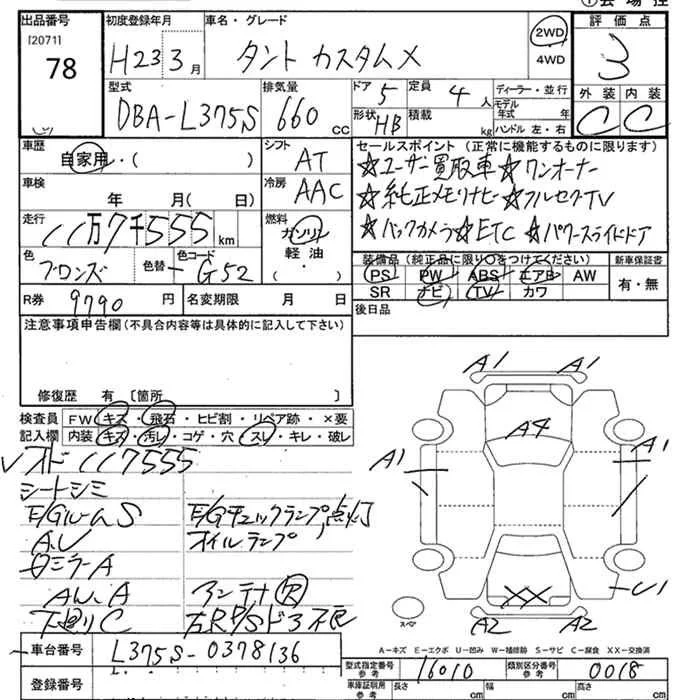 出品番号 初度登録年月 車名・グレード 評価点
[2071] 78 H23 3月 タント カスタムX 2WD 4WD 3
型式 排気量 ドア 定員 ディーラー・並行 外装 内装
DBA-L375S 660 CC 5 4人 モデル年式 年 C C
形状 HB 積載 kg ハンドル 左・右
車歴 シフト セールスポイント(正常に機能するものに限ります)
自家用・( ) AT ☆ユーザー買取車☆ワンオーナー
車検 冷房 ☆純正メモリナビ☆フルセグTV
年 月( 日) AAC ☆バックカメラ☆ETC☆パワースライドドア
走行 燃料
11万7千555km ガソリン
色 色替 色コード 軽油 装備品(純正品に限り○をつけてください) 新車保証書
ブロンズ - G52 ( ・ ) PS PW ABS エアB AW 有・無
R券 9790円 名変期限 月 日 SR ナビ TV カワ
注意事項申告欄(不具合内容等は具体的に記入して下さい) 後日品
修復歴 有 〔箇所 〕
検査員 FW キズ・飛石・ヒビ割・リペア跡・×要
記入欄 内装 キズ・汚レ・コゲ・穴・スレ・キレ・破レ
117555
シートシミ
E/Gルーム S E/Gチェックランプ点灯
A.U オイルランプ
ミラーA
AW.A アンテナ欠
下廻りC 左R P/Sドア不良
車台番号 L375S-0378136
登録番号
A1 A1
A4
A1 A1
XX U1
A2 A2
スペア
A-キズ E-エクボ U-凹み W-補修跡 S-サビ C-腐食 XX-交換済
型式指定番号 参考 16010 類別区分番号 参考 0018
車庫証明用 参考 長さ cm 幅 cm 高さ cm